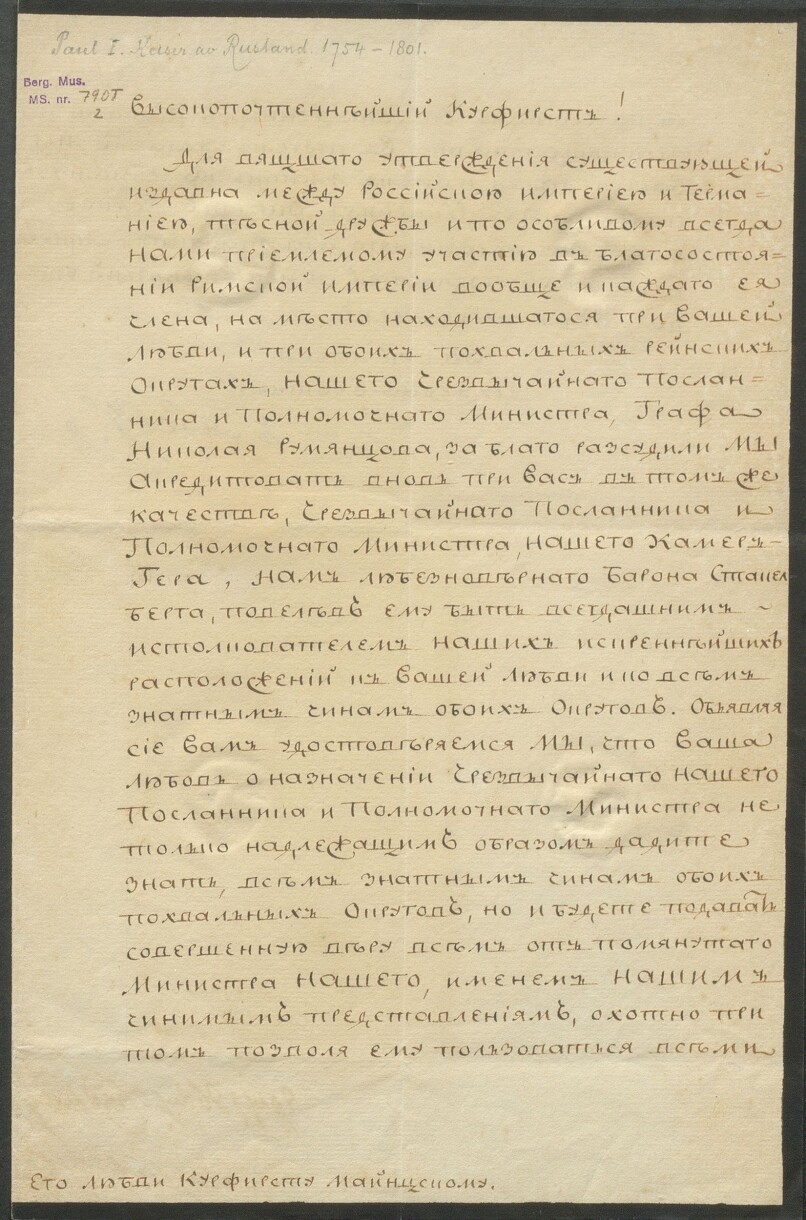 Paul I. Keiser av Rusland. 1754 – 1801.
Berg. Mus.
MS. nr. 790т
2
Высокопочтеннѣйшій Курфирстъ!
Для вящшаго утверждения существующей
издавна между Россійскою Имперіею и Герма=
ніею, тѣсной дружбы и по особливому всегда
Нами пріемлемому участію въ благосостоя=
ніи Римской Имперіи вообще и каждаго ея
члена, на мѣсто находившагося при Вашей
Любви, и при обоихъ похвальныхъ рейнскихъ
Округахъ, нашего Чрезвычайнаго Послан=
ника и Полномочнаго Министра, Графа
Николая Румянцова, за благо разсудили МЫ
Акредитовать вновь при Васъ въ томъ же
качествѣ, Чрезвычайнаго Посланника и
Полномочнаго Министра, нашего Камеръ-
Гера, намъ любезновѣрнаго Барона Стакел
берга, повелѣвъ ему быть всегдашнимъ ~
истолкователемъ нашихъ искреннѣйшихъ
расположеній къ Вашей Любви и ко всѣмъ
знатнымъ чинамъ обоихъ Округовъ. Объявляя
сіе Вамъ удостовѣряемся МЫ, что Ваша
Любовь о назначеніи Чрезвычайнаго нашего
Посланника и Полномочнаго Министра не
только надлежащимъ образомъ дадите
знать, всѣмъ знатнымъ чинамъ обоихъ
похвальныхъ Округовъ, но и будете подавать
совершенную вѣру всѣмъ отъ помянутаго
Министра НАШЕГО, именемъ НАШИМЪ
чинимымъ представленіямъ, охотно при
томъ позволя ему пользоваться всѣми
Его Любви Курфирсту Майнцскому.